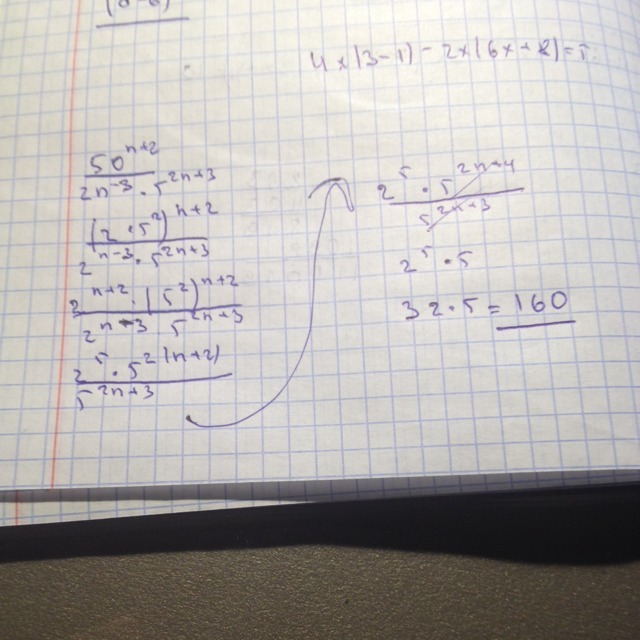 4x(3-1)-2x(6x+8)=5.
50^{n+2}
2^{n-3} · 5^{2n+3}
(2·5²)^{n+2}
2^{n-3} · 5^{2n+3}
2^{n+2} · (5²)^{n+2}
2^{n-3} 5^{2n+3}
2^5 · 5^{2(n+2)}
5^{2n+3}
2^5 · 5^{2n+4}
5^{2n+3}
2^5 · 5
32·5=160